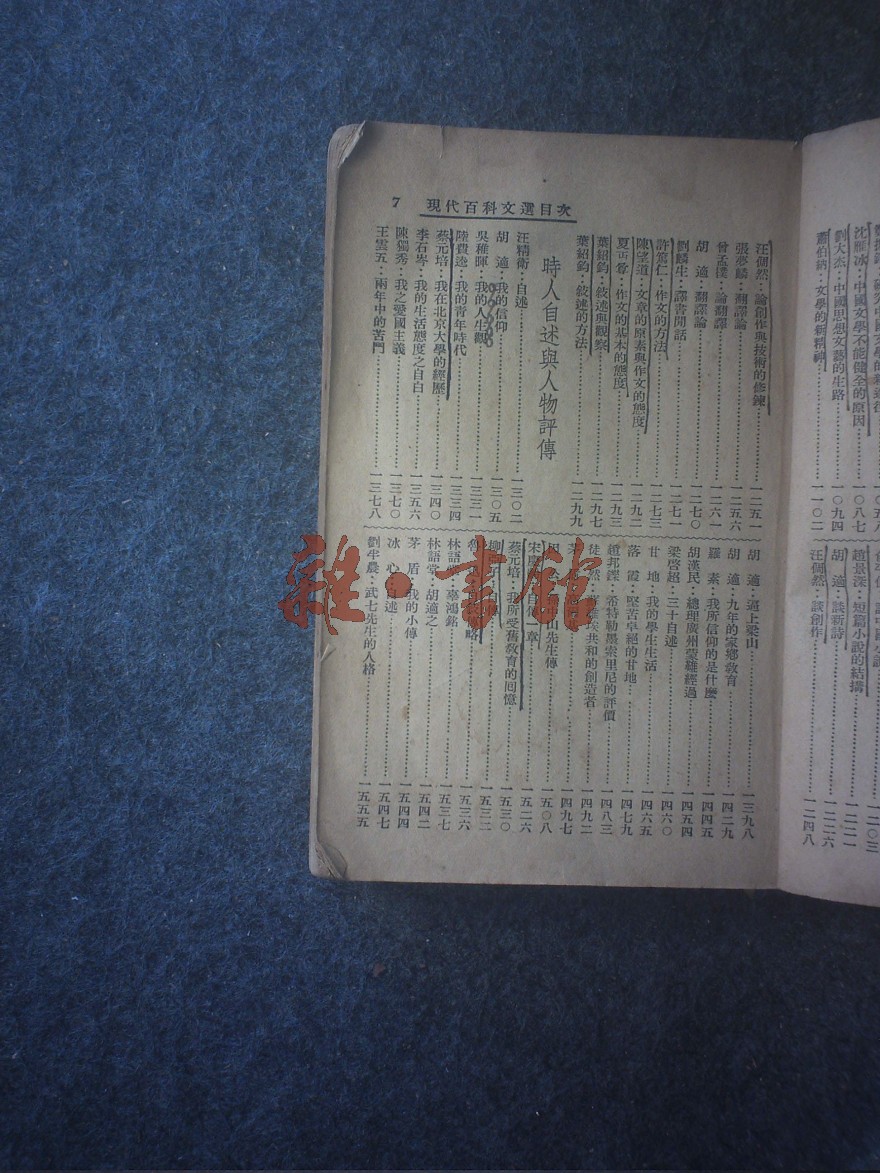 7 現代百科文選目次
汪倜然·論創作與技術的修鍊 一二五一
張夢麟·翻譯論 一二五六
曾孟樸·論翻譯 一二六一
胡 適·翻譯論
劉麟生·譯書閒話 一二七一
許篤仁·作文的方法 一二七三
陳望道·文章的原素與作文的態度 一二九二
夏丏尊·作文的基本的態度 一二九三
葉紹鈞·敍述與觀察 一二九七
葉紹鈞·敍述的方法 一二九九
時人自述與人物評傳
汪精衛·自述 一三〇二
胡 適·我的信仰 一三〇五
吳稚暉·我的人生觀 一三三一
陸費逵·我的青年時代 一三三四
蔡元培·我在北京大學的經歷 一三四〇
李石岑·我的生活態度之自白 一三五六
陳獨秀·我之愛國主義 一三七〇
王雲五·兩年中的苦鬥 一三七八
胡 適·逼上梁山 一三九八
胡 適·九年的家鄉敎育 一四二九
羅 素·我所信仰的是什麼 一四四五
胡漢民·總理廣州蒙難經過 一四五四
梁啓超·三十自述 一四六〇
甘 地·我的學生生活 一四六五
落 霞·堅苦卓絕的甘地 一四七九
趙邦鑅·希特勒墨索里尼的評價 一四八三
徒 然·共和的創造者 一四九二
一四九七
山先生傳 一五〇八
宋慶 自傳一章 一五二六
蔡元培·我所受舊敎育的回憶 一五三〇
柳 一五三二
魯 略 一五三六
林語堂·辜鴻銘 一五三七
林語堂·胡適之 一五四二
茅 盾·我的小傳 一五四四
冰 心·自述 一五四七
劉半農·武七先生的人格 一五五五
沈雁冰·中國文學不能健全的原因 一〇八七
劉大杰·中國思想文藝的生路 一〇九四
蕭伯納·文學的新精神 一一〇二
一二〇三
趙景深·短篇小說的結搆 一二一一
胡 適·談新詩 一二二六
汪倜然·談創作 一二四八
雜·書館